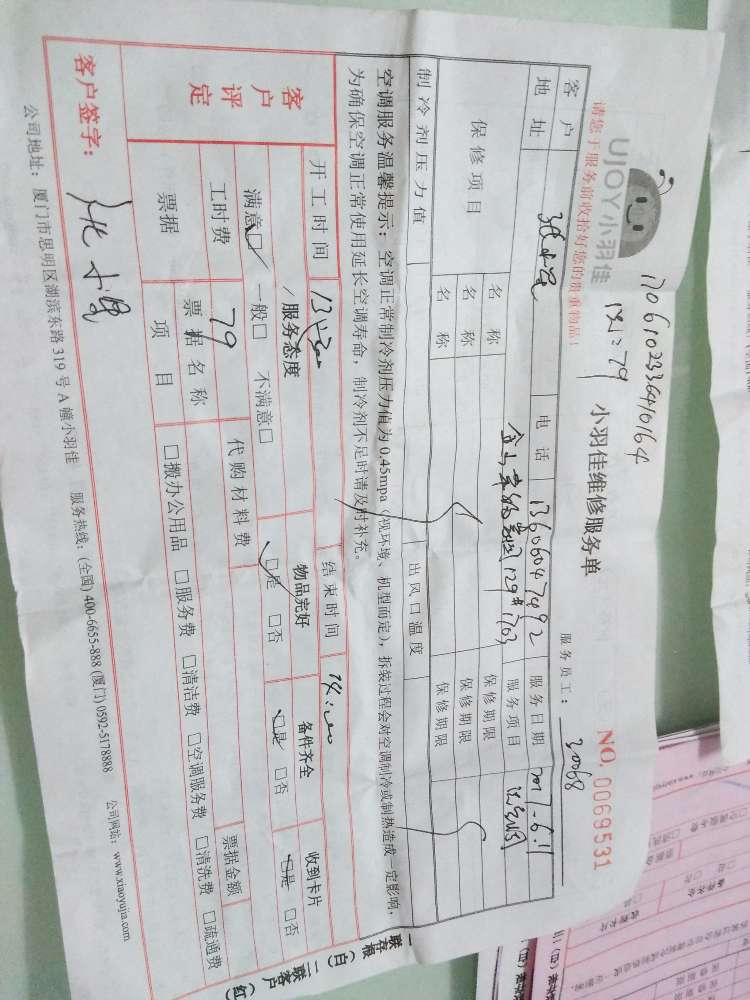 170610233640164
1×1=79
UJOY小羽佳
小羽佳维修服务单
NO. 0069531
请您于服务前收拾好您的贵重物品!
服务员工: 30068
客户 电话 13606047492 服务日期 2017-6.11
地址 129#1703 服务项目 洗空调
保修项目 名称 保修期限
名称 保修期限
名称 保修期限
制冷剂压力值 出风口温度
空调服务温馨提示: 空调正常制冷剂压力值为0.45mpa (视环境、机型而定), 拆装过程会对空调制冷或制热造成一定影响,
为确保空调正常使用延长空调寿命, 制冷剂不足时请及时补充。
开工时间 13:00 结束时间 14:00
客户评定 服务态度 物品完好 备件齐全 收到卡片
满意☑ 一般□ 不满意□ ☑是 □否 ☑是 □否 ☑是 □否
工时费 79 代购材料费
票据 票据名称 票据金额
项目 □搬办公用品 □服务费 □清洁费 □空调服务费 □清洗费 □疏通费
客户签字:
公司地址: 厦门市思明区湖滨东路319号A幢小羽佳 服务热线: (全国) 400-6655-888 (厦门) 0592-5178888 公司网站: www.xiaoyujia.com
一联存根 (白) 二联客户 (红)